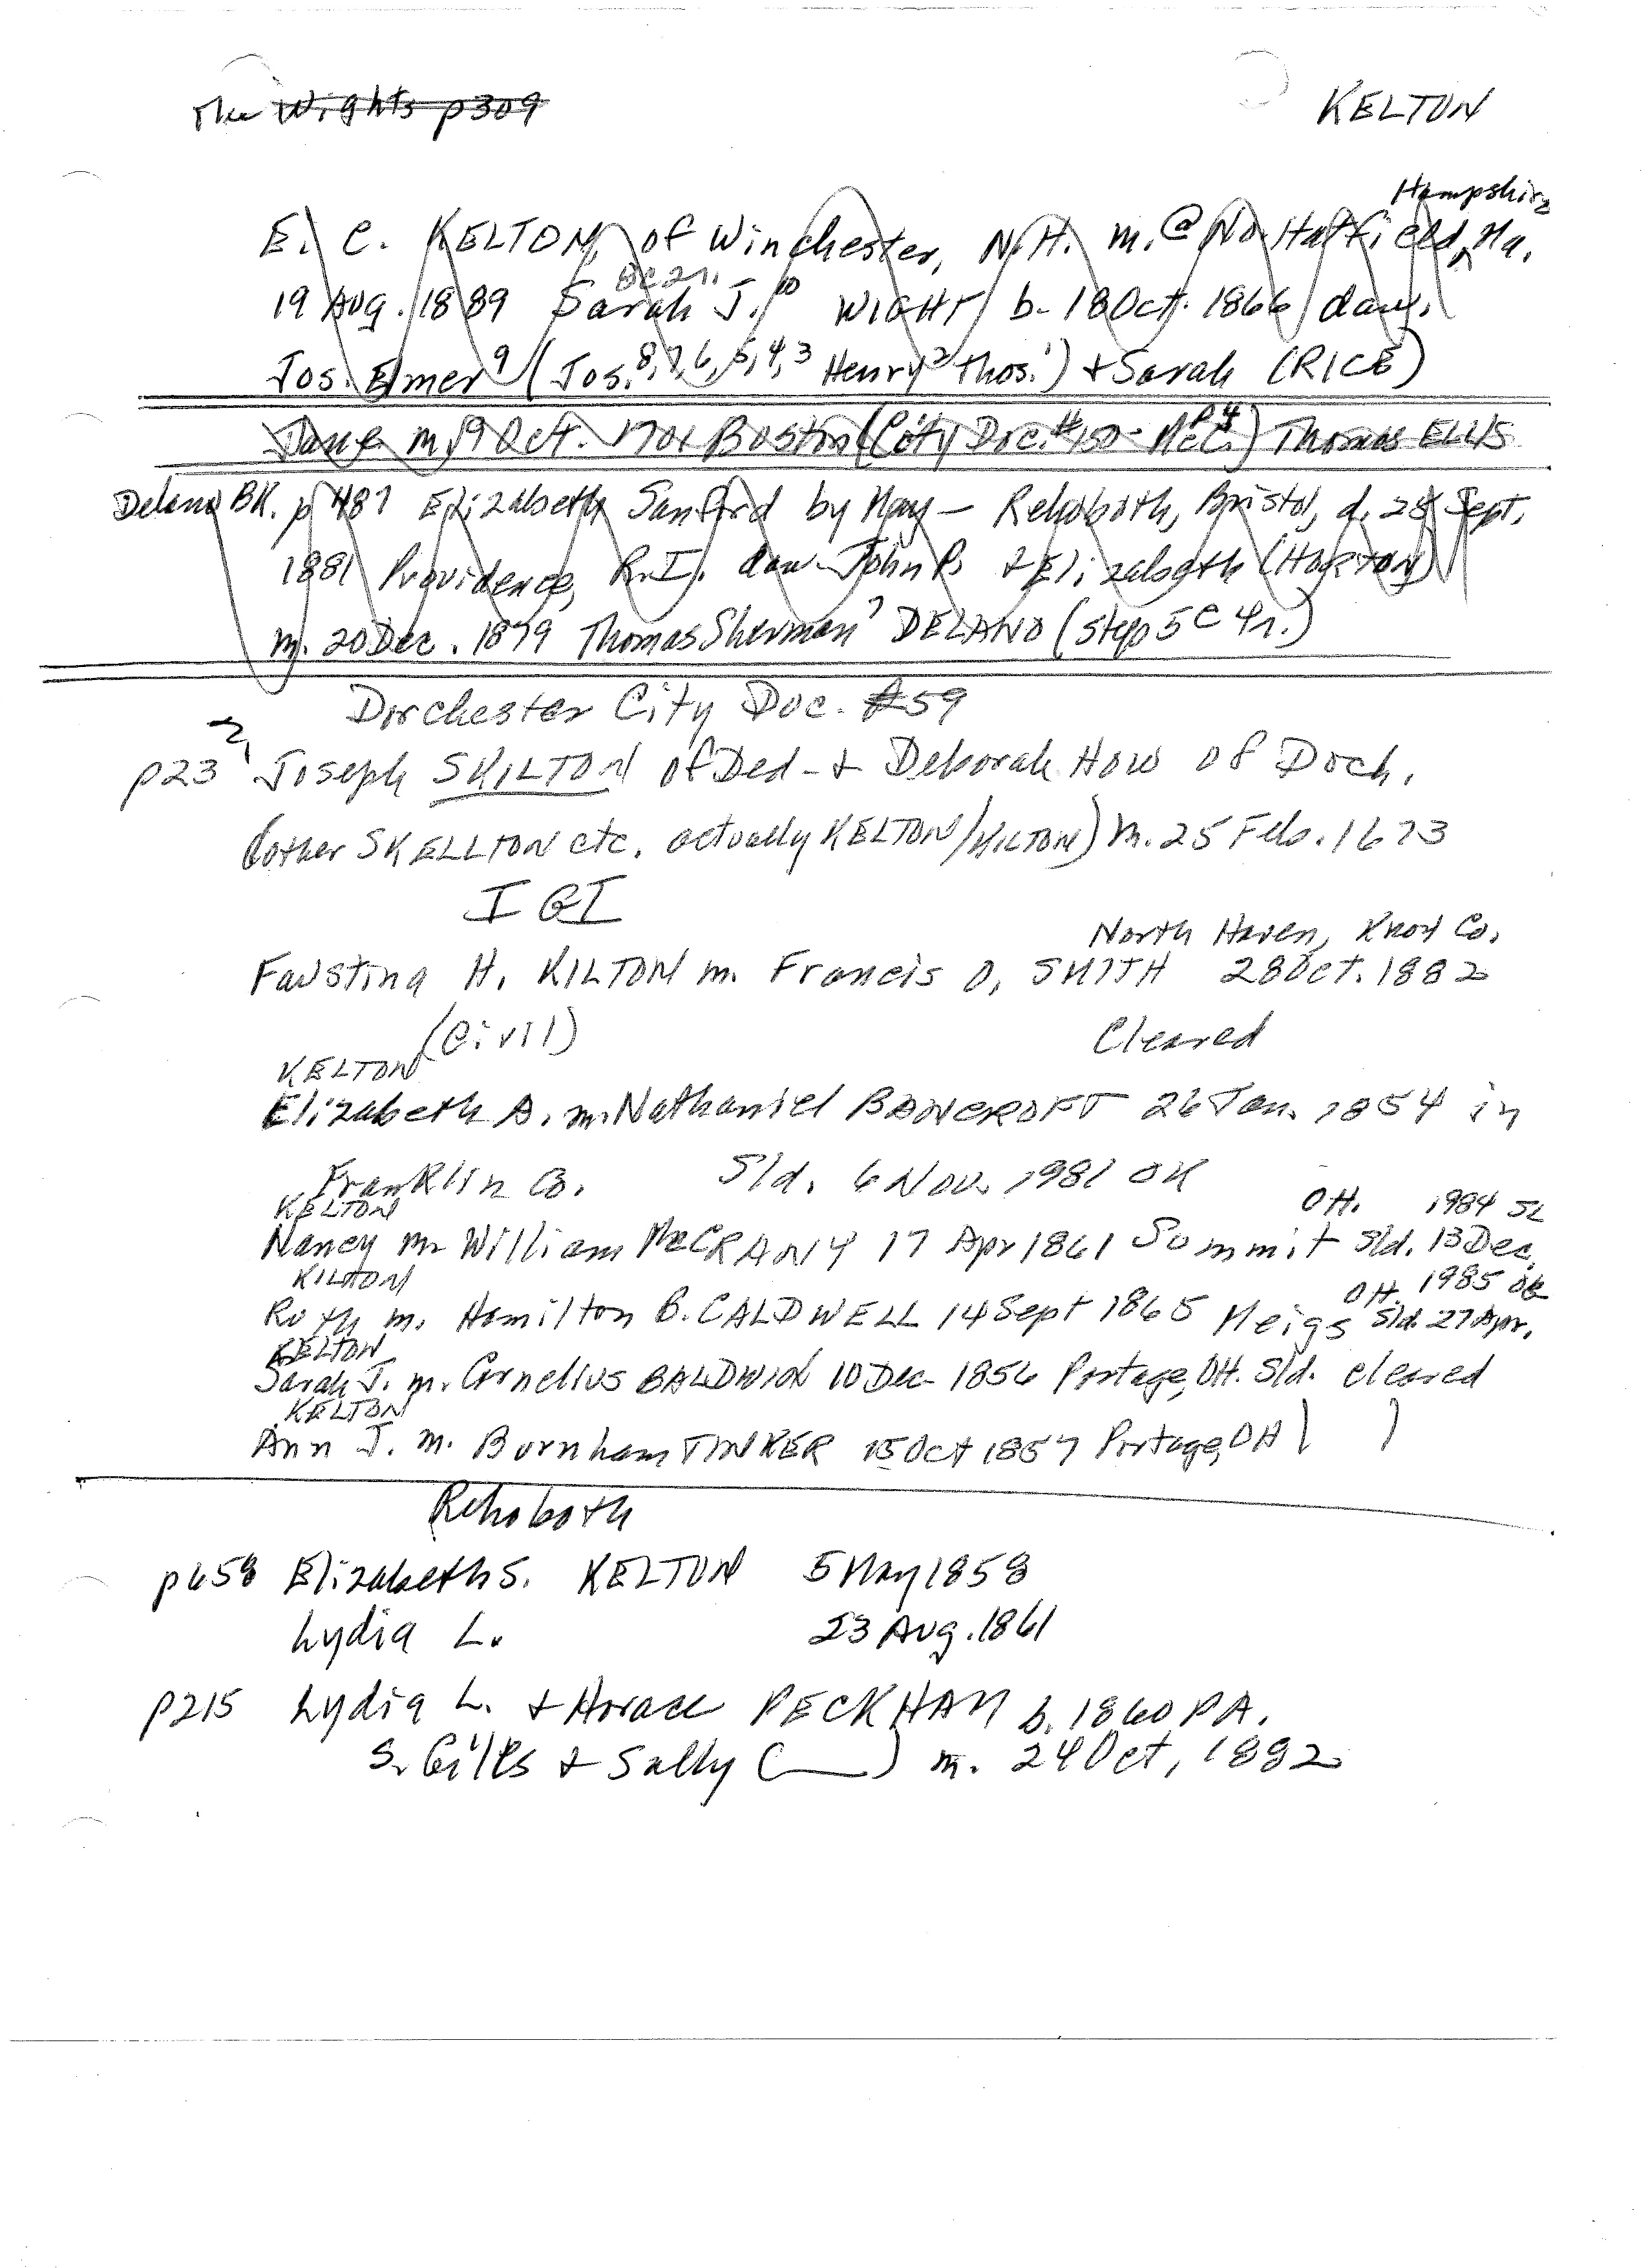 The Wights p309
KELTON
Hampshire
E. C. KELTON, of Winchester, N.H. m. @ No. Hatfield, Ma.
8C2r.
19 Aug. 1889 Sarah J.10 WIGHT b. 18 Oct. 1866 dau.
Jos. Elmer9 (Jos.8,7,6,5,4,3 Henry2 Thos.1) + Sarah (RICE)
Jane m. 9 Oct. 1701 Boston (City Doc. #150 - McC. p4) Thomas ELLIS
Delano BK. p487 Elizabeth Sanford by May - Rehoboth, Bristol, d. 28 Sept.
1881 Providence, R.I. dau. John P. + Elizabeth (HORTON)
m. 20 Dec. 1879 Thomas Sherman7 DELANO (Step 5C4r.)
Dorchester City Doc. #59
p23 Joseph SKILTON of Ded. + Deborah How of Doch.
(other SKELLTON etc. actually KELTON/KILTON) m. 25 Feb. 1673
IGI
North Haven, Knox Co.
Faustina H. KILTON m. Francis O. SMITH 28 Oct. 1882
(Civil) Cleared
KELTON
Elizabeth A. m. Nathaniel BANCROFT 26 Jan. 1854 in
Franklin Co. Sld. 6 Nov. 1981 OK
KELTON OH. 1984 SL
Nancy m. William McCRANY 17 Apr 1861 Summit Sld. 13 Dec.
KILTON OH. 1985 OK
Ruth m. Hamilton B. CALDWELL 14 Sept 1865 Meigs Sld. 27 Apr.
KELTON
Sarah J. m. Cornelius BALDWIN 10 Dec 1856 Portage, OH. Sld. cleared
KELTON
Ann J. m. Burnham TINKER 15 Oct 1857 Portage, OH ( )
Rehoboth
p658 Elizabeth S. KELTON 5 May 1858
Lydia L. 23 Aug. 1861
p215 Lydia L. + Horace PECKHAM b. 1860 PA.
s. Giles + Sally (___) m. 24 Oct, 1882